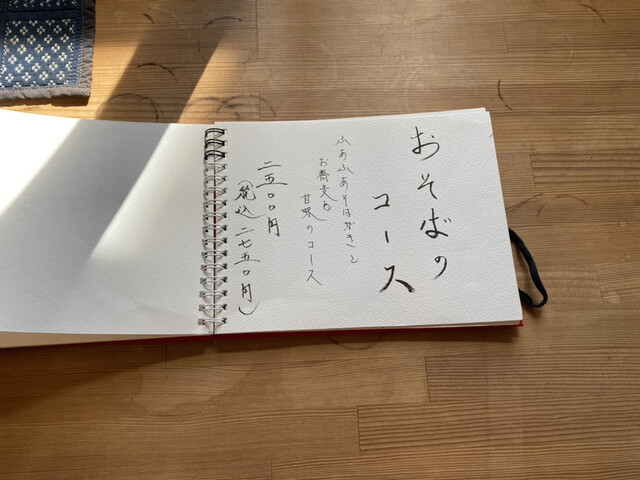 おそばの
コース
ふわふわそばがきと
お蕎麦と
甘味のコース
二五〇〇円
(税込二七五〇円)